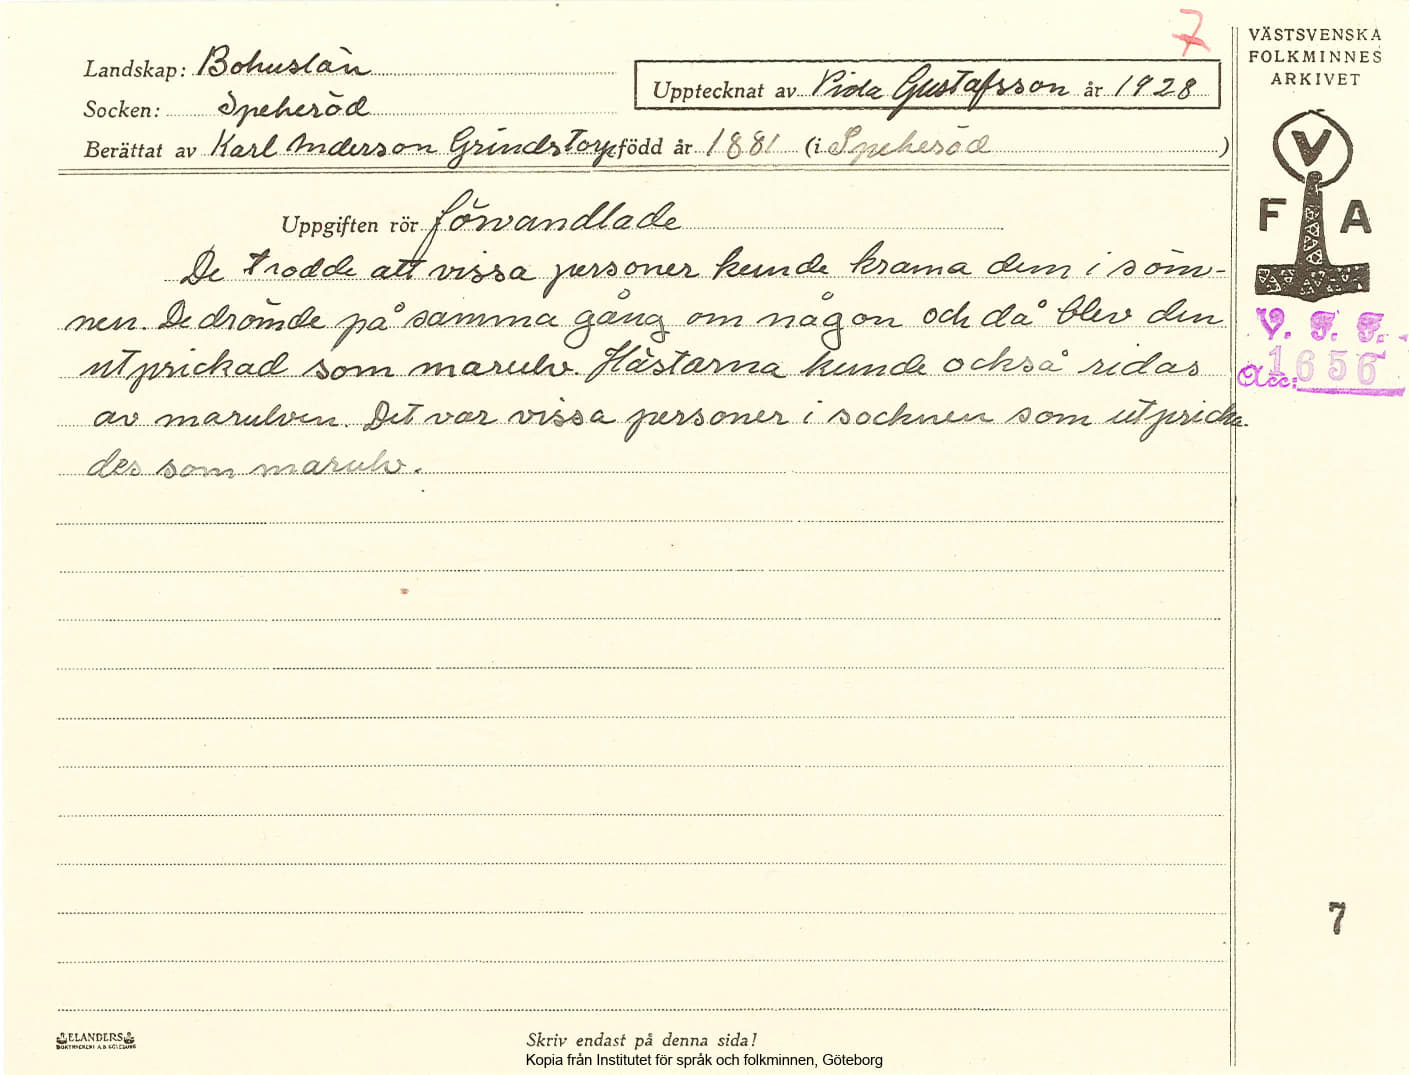 7
VÄSTSVENSKA
FOLKMINNES
ARKIVET
Landskap: Bohuslän
Upptecknat av Vida Gustafsson år 1928
Socken: Spekeröd
Berättat av Karl Anderson Grindstorp född år 1881 (i Spekeröd )
V
F A
Uppgiften rör förvandlade
De trodde att vissa personer kunde krama dem i söm-
nen. De drömde på samma gång om någon och då blev den
utprickad som marulv. Hästarna kunde också ridas
av marulven. Det var vissa personer i socknen som utpricka-
des som marulv.
V. F. F.
Acc: 1656
7
ELANDERS
BOKTRYCKERI A.B. GÖTEBORG
Skriv endast på denna sida!
Kopia från Institutet för språk och folkminnen, Göteborg